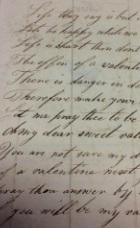 Life they say is but
Lets be happy while we
Life is short then dont
The offer of a valentine
There is danger in de
Therefore make your
let me pray thee to be
Oh my dear sweet val
You are not sure my d
of a valentine next
pray thou answer by
if you will be my va